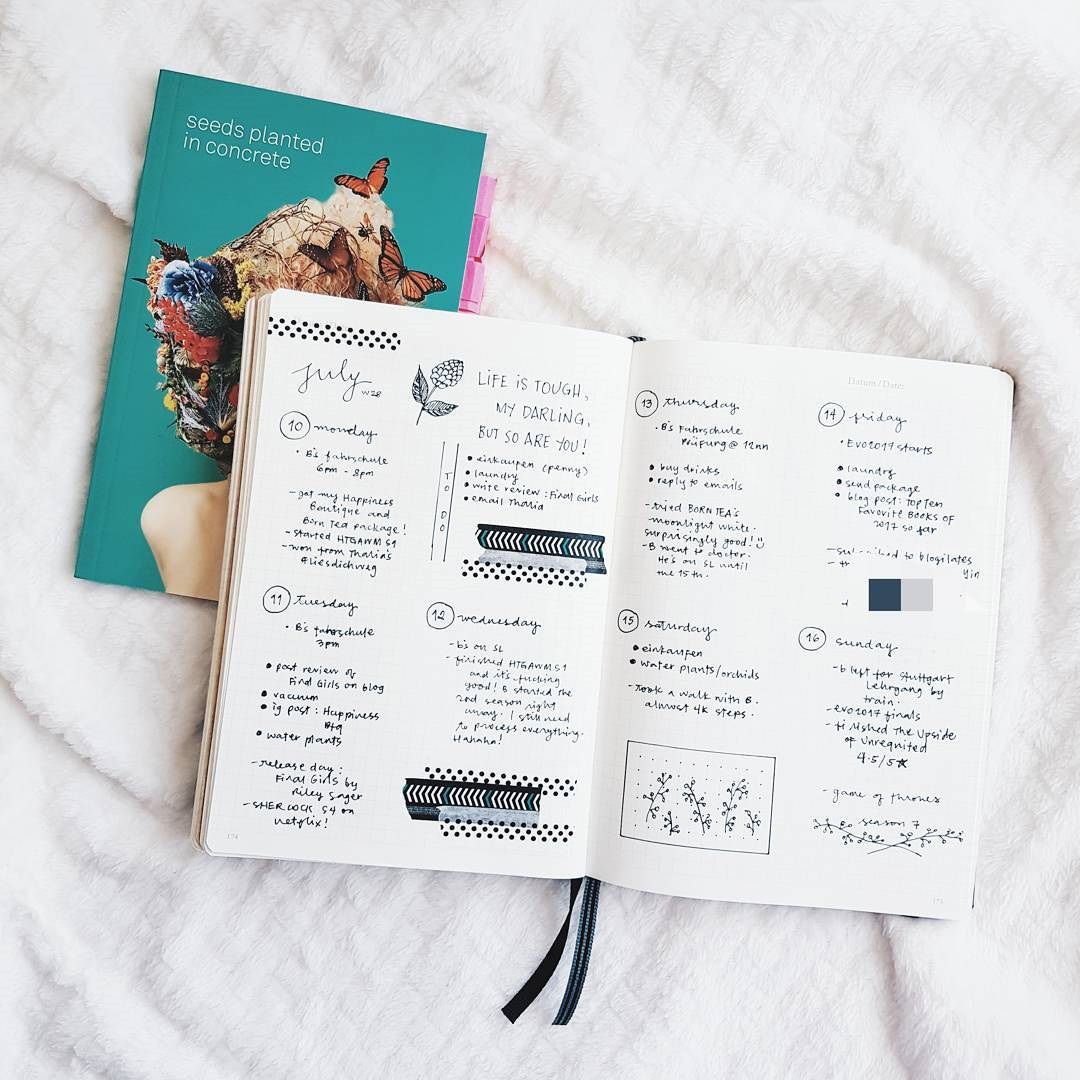 seeds planted
in concrete
july
W28
LIFE IS TOUGH,
MY DARLING,
BUT SO ARE YOU!
10 monday
• B's fahrschule
6pm - 8pm
- got my Happiness
Boutique and
Born Tea package!
- started HTGAWM S1
- won from Thalia's
#liesdichweg
TO DO
• einkaufen (penny)
• laundry
• write review: Final Girls
• email Thalia
11 Tuesday
• B's fahrschule
3pm
• post review of
Final Girls on blog
• vacuum
• ig post: Happiness
Btq
• water plants
- release day:
Final Girls by
Riley Sager
- SHERLOCK S4 on
netflix!
12 wednesday
- b's on SL
- finished HTGAWM S1
and it's fucking
good! B started the
2nd season right
away. I still need
to process everything.
Hahaha!
174
13 thursday
• B's Fahrschule
Prüfung @ 12nn
• buy drinks
• reply to emails
- tried BORN TEA's
moonlight white.
surprisingly good!
- B went to doctor.
He's on SL until
the 15th.
Datum / Date:
14 friday
• EVO2017 starts
• laundry
• send package
• blog post: Top Ten
Favorite Books of
2017 so far
to blogilates
Yin
15 saturday
• einkaufen
• water plants/orchids
- Took a walk with B.
almost 4k steps.
16 sunday
- b left for Stuttgart
Lehrgang by
train.
- EVO2017 finals
- finished The Upside
of Unrequited
4.5/5☆
- game of thrones
season 7
175